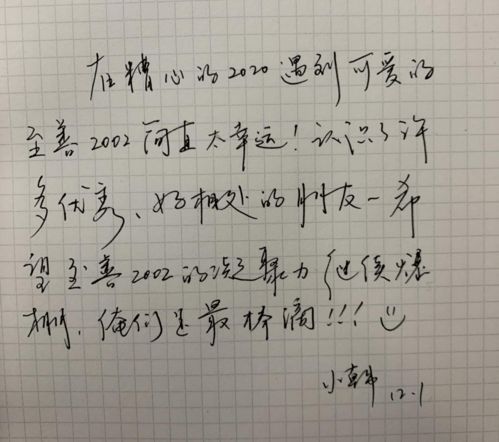 在糟心的2020遇到可爱的
至善2002简直太幸运!认识了许
多优秀、好相处的朋友~希
望至善2002的凝聚力继续爆
棚,俺们还最棒滴!!!
小韩 12.1